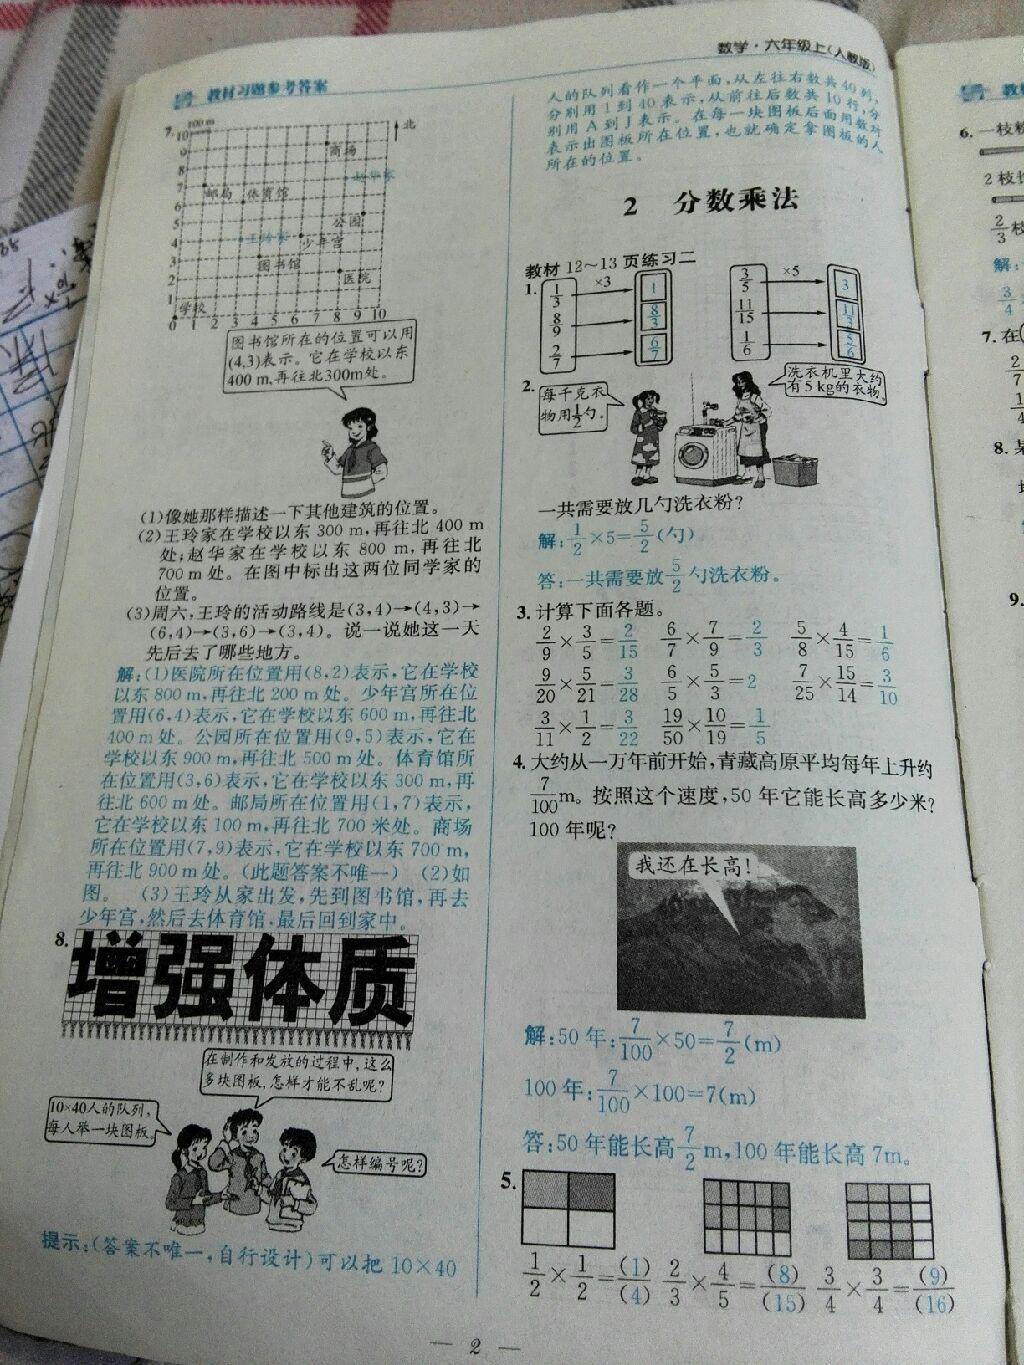 数学·六年级上(人教版)
教材习题参考答案
7.
100 m
北
10
9
8
7
6
5
4
3
2
1
0 1 2 3 4 5 6 7 8 9 10
商场
赵华家
邮局 体育馆
公园
王玲家 少年宫
图书馆
医院
学校
图书馆所在的位置可以用
(4,3)表示。它在学校以东
400 m,再往北300m处。
(1)像她那样描述一下其他建筑的位置。
(2)王玲家在学校以东 300 m,再往北 400 m
处;赵华家在学校以东 800 m,再往北
700 m 处。在图中标出这两位同学家的
位置。
(3)周六,王玲的活动路线是(3,4)→(4,3)→
(6,4)→(3,6)→(3,4)。说一说她这一天
先后去了哪些地方。
解:(1)医院所在位置用(8,2)表示,它在学校
以东 800 m,再往北 200 m 处。少年宫所在位
置用(6,4)表示,它在学校以东 600 m,再往北
400 m 处。公园所在位置用(9,5)表示,它在
学校以东 900 m,再往北 500 m 处。体育馆所
在位置用(3,6)表示,它在学校以东 300 m,再
往北 600 m 处。邮局所在位置用(1,7)表示,
它在学校以东 100 m,再往北 700 米处。商场
所在位置用(7,9)表示,它在学校以东 700 m,
再往北 900 m 处。(此题答案不唯一) (2)如
图。 (3)王玲从家出发,先到图书馆,再去
少年宫,然后去体育馆,最后回到家中。
8.
增强体质
在制作和发放的过程中,这么
多块图板,怎样才能不乱呢?
10×40人的队列,
每人举一块图板。
怎样编号呢?
提示:(答案不唯一,自行设计)可以把 10×40
人的队列看作一个平面,从左往右数共 40 列,
分别用 1 到 40 表示,从前往后数共 10 行,分
别用 A 到 J 表示。在每一块图板后面用数对
表示出图板所在位置,也就确定拿图板的人
所在的位置。
2 分数乘法
教材 12~13 页练习二
1. 1/3 8/9 2/7 ×3 1 8/3 6/7 3/5 11/15 1/6 ×5 3 11/3 5/6
2.
每千克衣
物用1/2勺。
洗衣机里大约
有5 kg的衣物。
一共需要放几勺洗衣粉?
解:1/2×5=5/2(勺)
答:一共需要放5/2勺洗衣粉。
3. 计算下面各题。
2/9×3/5=2/15 6/7×7/9=2/3 5/8×4/15=1/6
9/20×5/21=3/28 6/5×5/3=2 7/25×15/14=3/10
3/11×1/2=3/22 19/50×10/19=1/5
4. 大约从一万年前开始,青藏高原平均每年上升约
7/100m。按照这个速度,50 年它能长高多少米?
100 年呢?
我还在长高!
解:50 年:7/100×50=7/2(m)
100 年:7/100×100=7(m)
答:50 年能长高7/2m,100 年能长高 7m。
5.
1/2×1/2=(1)/(4) 2/3×4/5=(8)/(15) 3/4×3/4=(9)/(16)
— 2 —
6. 一枝粉
2 枝
2/3枝
解:
3/4
7. 在
2/7
8.
9.